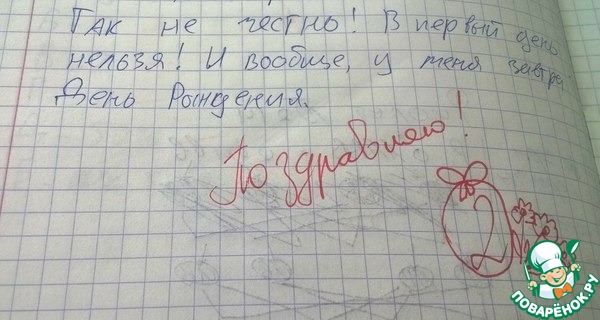 Так не честно! В первый день
нельзя! И вообще, у меня завтра
День Рождения.
Поздравляю!
2
ПОВАРЁНОК.РУ